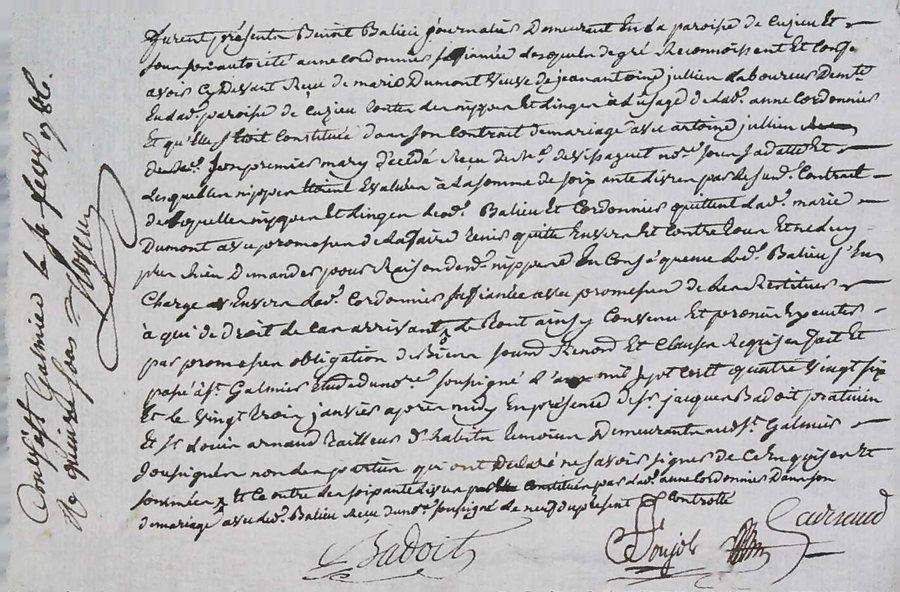 furent présents Benoit Balieu journalier demeurant en la paroisse de Cuzieu et
sous son autorité anne Cordonnier sa fiancée lesquels de gré Reconnoissent et Conf
avoir Cydevant Reçu de marie Dumont veuve de jean antoine jullien laboureur dem
En lad. paroisse de Cuzieu toutes les nippes et linges à l'usage de lad. anne Cordonnier
Et qu'elle s'etoit Constituée dans son Contrat de mariage avec antoine jullien
son premier mary décédé Reçu de M. not. sous sa datte Et
lesquelles nippes Evaluées à la somme de soixante livres par le susd. Contrat
desquelles nippes et linges lesd. Balieu et Cordonnier quittent lad. marie
Dumont avec promesse de la faire tenir quitte Envers Et contre tous Et ne luy
plus Rien demander pour Raison desd. nippes En Conséquence led. Balieu s'En
Charge Envers lad. Cordonnier sa fiancée avec promesse de les Restituer
à qui de Droit le Cas arrivant, ainsy Convenu Et promis Executer
par promesse obligation de Biens soumd Renond Et Clauses Requises fait Et
passé à St. Galmier Etude du nore soussigné L'an mil sept Cent quatre vingt six
Et le vingt trois janvier après midy En présence de sr. jacques Badoit praticien
Et sr. Louis arnaud tailleur d'habits temoins Demeurants aud. St. Galmier
soussignés non les parties qui ont Déclaré ne savoir signer de Ce Enquises Et
sommées, Et Ce outre les soixante livres Constituées par lad. anne Cordonnier Dans son
de mariage avec led. Balieu Reçu du nore soussigné le neuf du présent Controtte
Badoit Soujol
Con. à St. Galmier le fevr 1786.
R. quinze sous